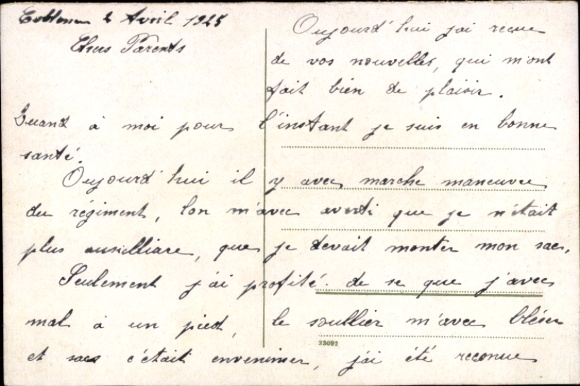 Coblence 2 Avril 1925
Chers Parents
Oujourd'hui j'ai reçue
de vos nouvelles, qui m'ont
fait bien de plaisir.
Quand à moi pour l'instant je suis en bonne
santé.
Oujourd'hui il y avec marche maneuvre
du régiment, l'on m'avec averti que je n'était
plus ausilliare, que je devait monter mon sac,
Seulement j'ai profité de se que j'avec
mal à un pied, le soullier m'avec bléser
et sacs c'était envenimer, j'ai été reconnue
25092